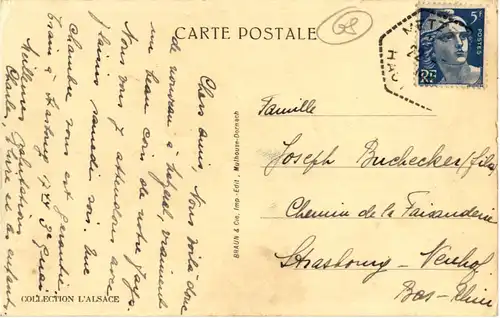 CARTE POSTALE
68
METZ
5F
POSTES
RF
Chers amis, Nous voilà donc
de nouveau à                 , vraiment
un beau coin de notre pays.
Nous vous y attendons avec
plaisir samedi soir. Une
chambre vous est garantie.
Train à Strasbourg
Meilleures Salutations
Charles,             et les enfants.
COLLECTION L'ALSACE
BRAUN & Cie, Imp.-Edit., Mulhouse-Dornach
Famille
Joseph Buchecker/fils
Chemin de la Faisanderie
Strasbourg - Neuhof
Bas-Rhin